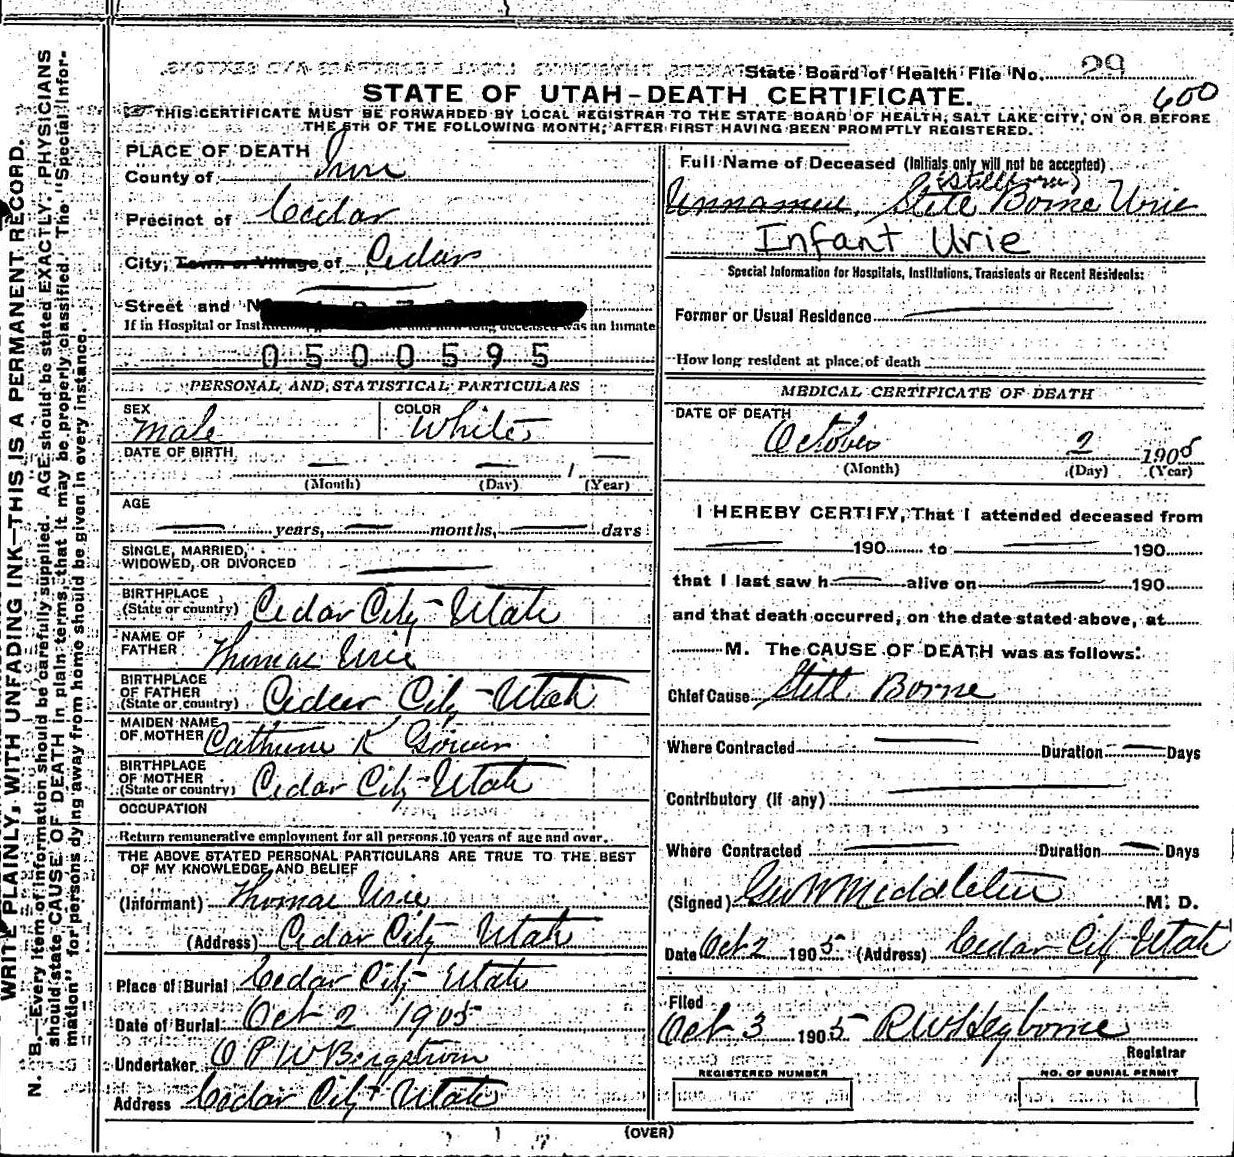 State Board of Health File No. 29
STATE OF UTAH-DEATH CERTIFICATE.
600
THIS CERTIFICATE MUST BE FORWARDED BY LOCAL REGISTRAR TO THE STATE BOARD OF HEALTH, SALT LAKE CITY, ON OR BEFORE
THE 5TH OF THE FOLLOWING MONTH, AFTER FIRST HAVING BEEN PROMPTLY REGISTERED.
PLACE OF DEATH
County of Iron
Precinct of Cedar
City, Town or Village of Cedar
Street and N
If in Hospital or Instit deceased was an inmate
0500595
PERSONAL AND STATISTICAL PARTICULARS
SEX COLOR
Male White
DATE OF BIRTH
— — 1 —
(Month) (Day) (Year)
AGE
— years, — months, — days
SINGLE, MARRIED,
WIDOWED, OR DIVORCED —
BIRTHPLACE
(State or country) Cedar City - Utah
NAME OF
FATHER Thomas Urie
BIRTHPLACE
OF FATHER
(State or country) Cedar City - Utah
MAIDEN NAME
OF MOTHER Catherine K
BIRTHPLACE
OF MOTHER
(State or country) Cedar City - Utah
OCCUPATION
Return remunerative employment for all persons 10 years of age and over.
THE ABOVE STATED PERSONAL PARTICULARS ARE TRUE TO THE BEST
OF MY KNOWLEDGE AND BELIEF
(Informant) Thomas Urie
(Address) Cedar City Utah
Place of Burial Cedar City - Utah
Date of Burial Oct 2 1905
Undertaker O P W Bergstrom
Address Cedar City Utah
Full Name of Deceased (Initials only will not be accepted)
(Stillborn)
Unnamed Stile Borne Urie
Infant Urie
Special Information for Hospitals, Institutions, Transients or Recent Residents:
Former or Usual Residence —
How long resident at place of death
MEDICAL CERTIFICATE OF DEATH
DATE OF DEATH
October 2 1905
(Month) (Day) (Year)
I HEREBY CERTIFY, That I attended deceased from
— 190 to — 190
that I last saw h— alive on — 190
and that death occurred, on the date stated above, at
M. The CAUSE OF DEATH was as follows:
Chief Cause Still Borne
Where Contracted — Duration — Days
Contributory (if any) —
Where Contracted — Duration — Days
(Signed) Geo W Middleton M. D.
Date Oct 2 1905 (Address) Cedar City Utah
Filed
Oct 3 1905 R W Heyborne
Registrar
REGISTERED NUMBER NO. OF BURIAL PERMIT
(OVER)
WRITE PLAINLY, WITH UNFADING INK—THIS IS A PERMANENT RECORD.
N. B.—Every item of information should be carefully supplied. AGE should be stated EXACTLY. PHYSICIANS
should state CAUSE OF DEATH in plain terms, that it may be properly classified. The "Special Infor-
mation" for persons dying away from home should be given in every instance.